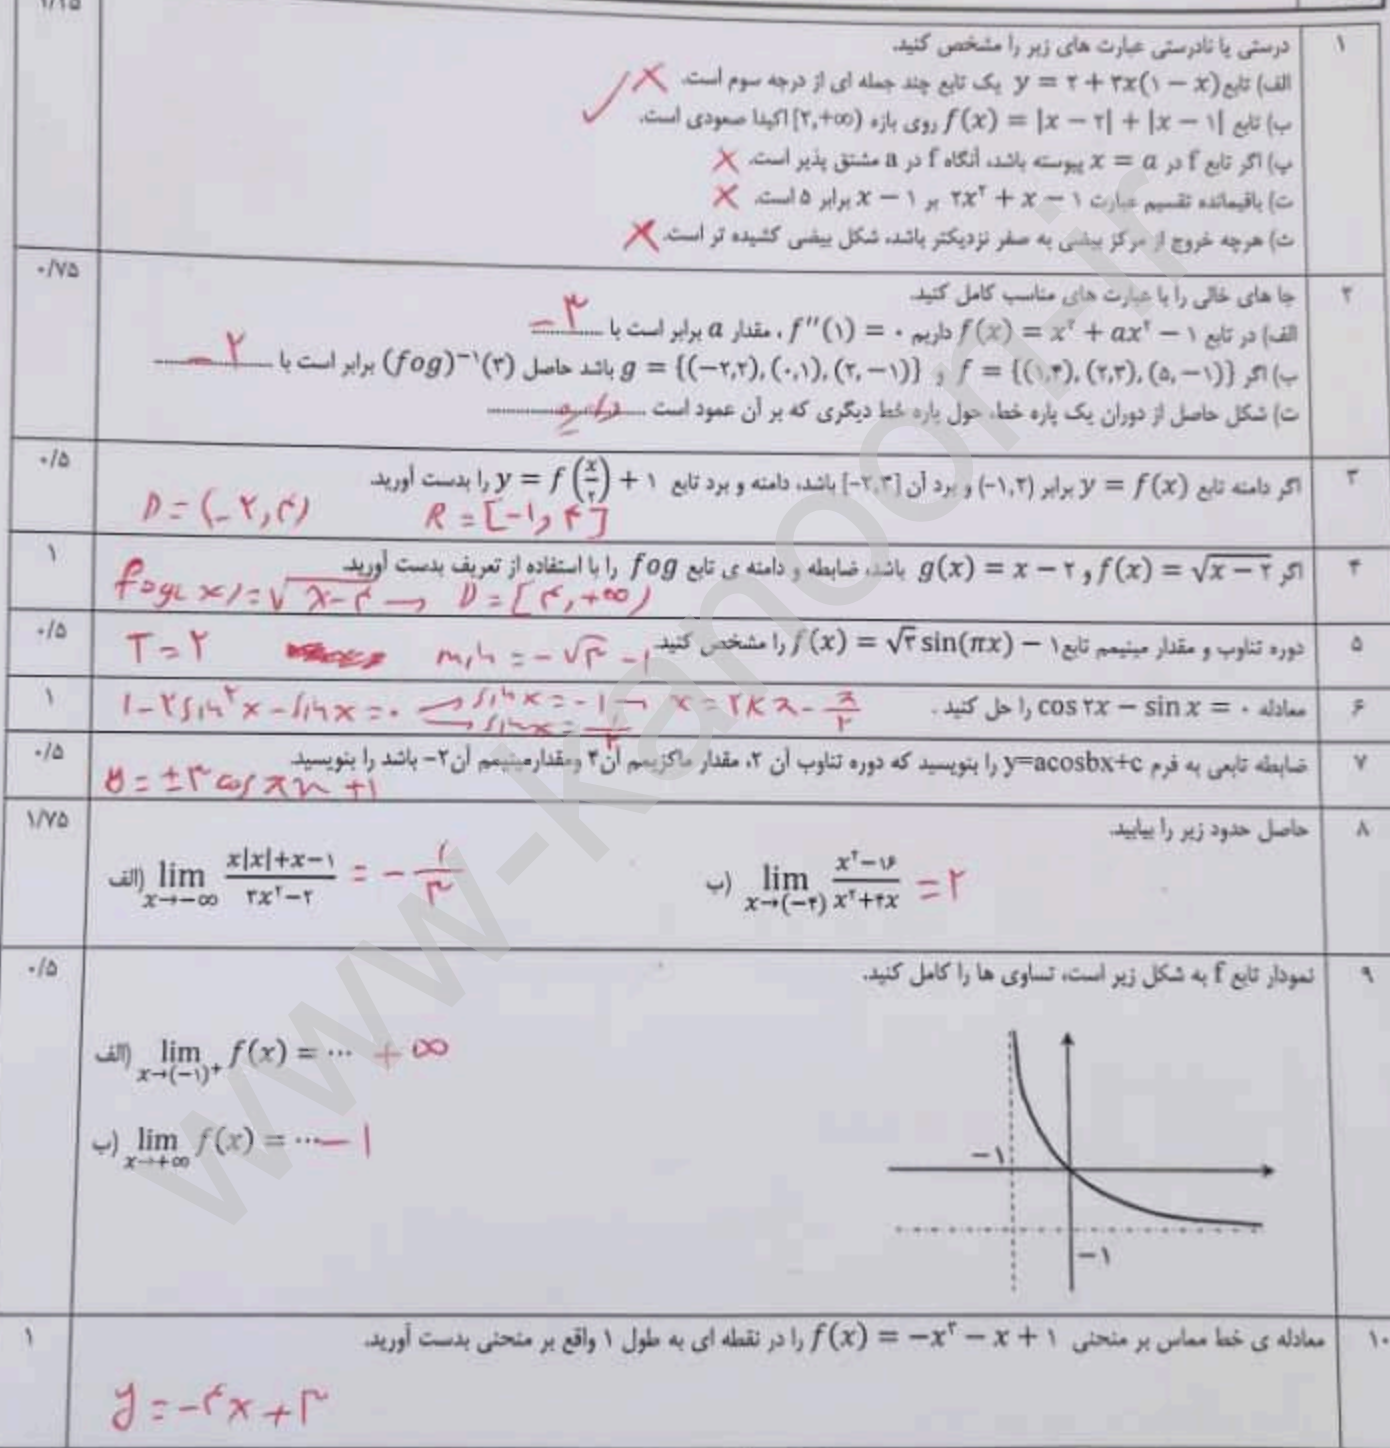 ۱/۲۵
۱
درستی یا نادرستی عبارت های زیر را مشخص کنید.
الف) تابع y = ۲ + ۳x(۱ − x) یک تابع چند جمله ای از درجه سوم است. ×
ب) تابع f(x) = |x − ۲| + |x − ۱| روی بازه [۲,+∞) اکیدا صعودی است. ✓
پ) اگر تابع f در x = a پیوسته باشد، آنگاه f در a مشتق پذیر است. ×
ت) باقیمانده تقسیم عبارت ۲x² + x − ۱ بر x − ۱ برابر ۵ است. ×
ث) هرچه خروج از مرکز بیضی به صفر نزدیکتر باشد، شکل بیضی کشیده تر است. ×
۲
۰/۷۵
جا های خالی را با عبارت های مناسب کامل کنید.
الف) در تابع f(x) = x³ + ax² − ۱ داریم f''(۱) = ۰ ، مقدار a برابر است با ........ −۳
ب) اگر f = {(۱,۴), (۲,۳), (۵,−۱)} و g = {(−۲,۲), (۰,۱), (۲,−۱)} باشد حاصل (fog)⁻¹(۳) برابر است با ........ −۲
ت) شکل حاصل از دوران یک پاره خط، حول پاره خط دیگری که بر آن عمود است ........ دایره
۳
۰/۵
اگر دامنه تابع y = f(x) برابر (−۱,۲) و برد آن [−۲,۳] باشد، دامنه و برد تابع y = f(x/۲) + ۱ را بدست آورید.
D = (−۲,۴) R = [−۱,۴]
۴
۱
اگر f(x) = √(x − ۲) و g(x) = x − ۲ باشد، ضابطه و دامنه ی تابع fog را با استفاده از تعریف بدست آورید.
fog(x) = √(x−۴) → D = [۴,+∞)
۵
۰/۵
دوره تناوب و مقدار مینیمم تابع f(x) = √۳ sin(πx) − ۱ را مشخص کنید.
T = ۲ min = −√۳ −۱
۶
۱
معادله cos ۲x − sin x = ۰ را حل کنید .
۱−۲sin²x − sinx = ۰ → sinx = −۱ → x = ۲kπ − π/۲
→ sinx = ۱/۲
۷
۰/۵
ضابطه تابعی به فرم y=acosbx+c را بنویسید که دوره تناوب آن ۲، مقدار ماکزیمم آن ۴ ومقدار مینیمم آن ۲− باشد را بنویسید.
y = ±۳ cos πx +۱
۸
۱/۷۵
حاصل حدود زیر را بیابید.
الف) lim x→−∞ (x|x|+x−۱)/(۳x²−۲) = −۱/۳
ب) lim x→(−۴) (x²−۱۶)/(x²+۴x) = ۲
۹
۰/۵
نمودار تابع f به شکل زیر است، تساوی ها را کامل کنید.
الف) lim x→(−۱)⁺ f(x) = ⋯ +∞
ب) lim x→+∞ f(x) = ⋯ −۱
−۱
−۱
۱۰
۱
معادله ی خط مماس بر منحنی f(x) = −x³ − x + ۱ را در نقطه ای به طول ۱ واقع بر منحنی بدست آورید.
y = −۴x + ۳
www-kanoon.ir